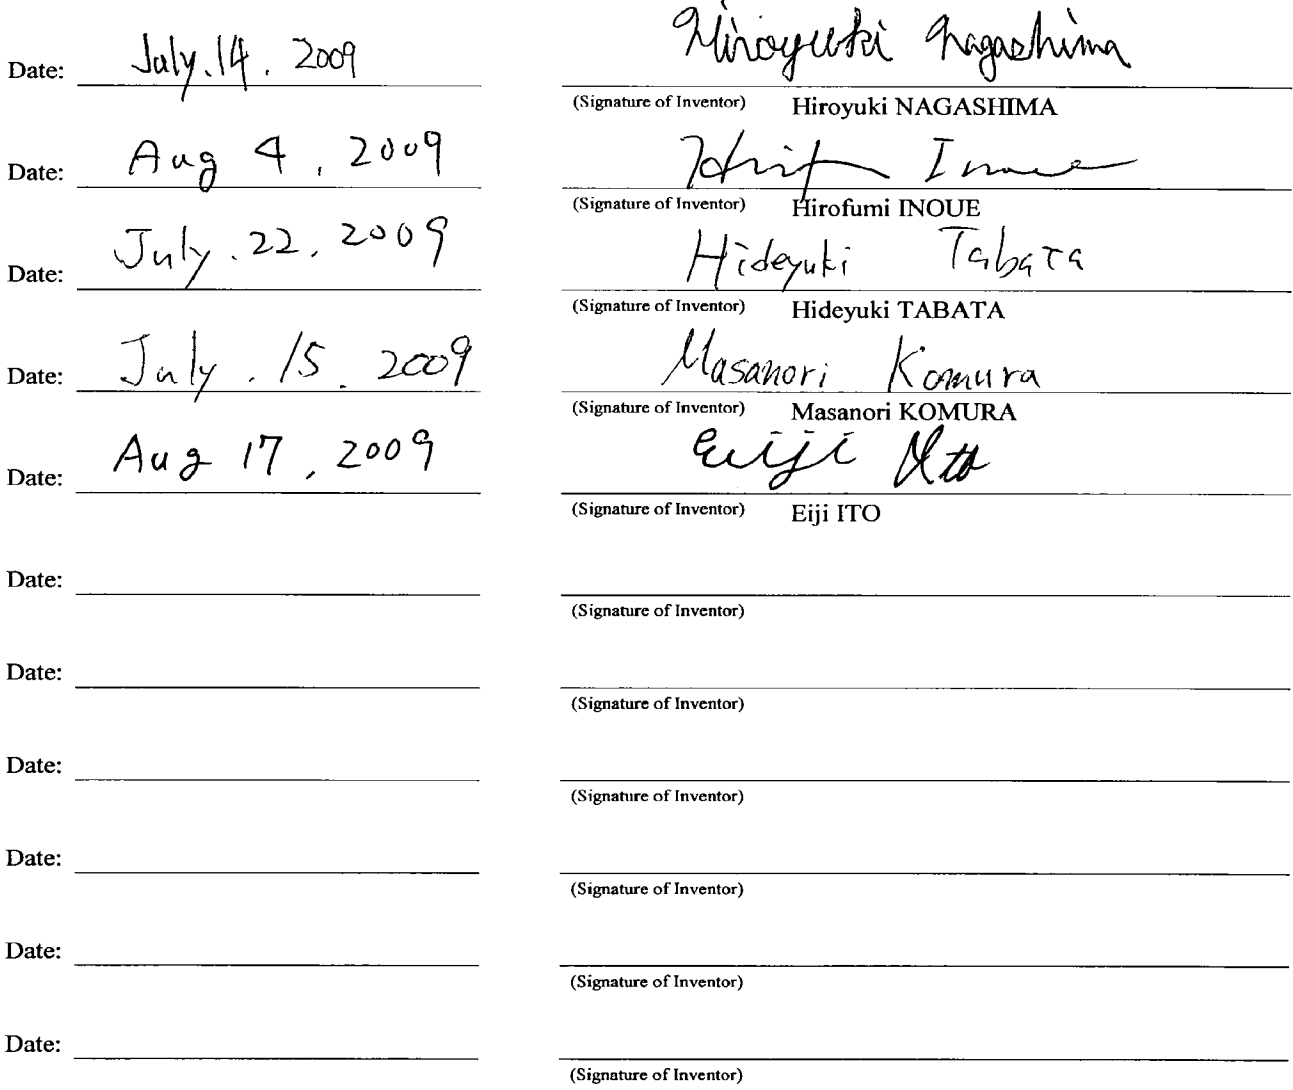 Date: July. 14. 2009 Hiroyuki Nagashima
(Signature of Inventor) Hiroyuki NAGASHIMA
Date: Aug 4, 2009 Inoue
(Signature of Inventor) Hirofumi INOUE
Date: July. 22. 2009 Hideyuki Tabata
(Signature of Inventor) Hideyuki TABATA
Date: July. 15. 2009 Masanori Komura
(Signature of Inventor) Masanori KOMURA
Date: Aug 17, 2009 Eiji Ito
(Signature of Inventor) Eiji ITO
Date:
(Signature of Inventor)
Date:
(Signature of Inventor)
Date:
(Signature of Inventor)
Date:
(Signature of Inventor)
Date:
(Signature of Inventor)
Date:
(Signature of Inventor)